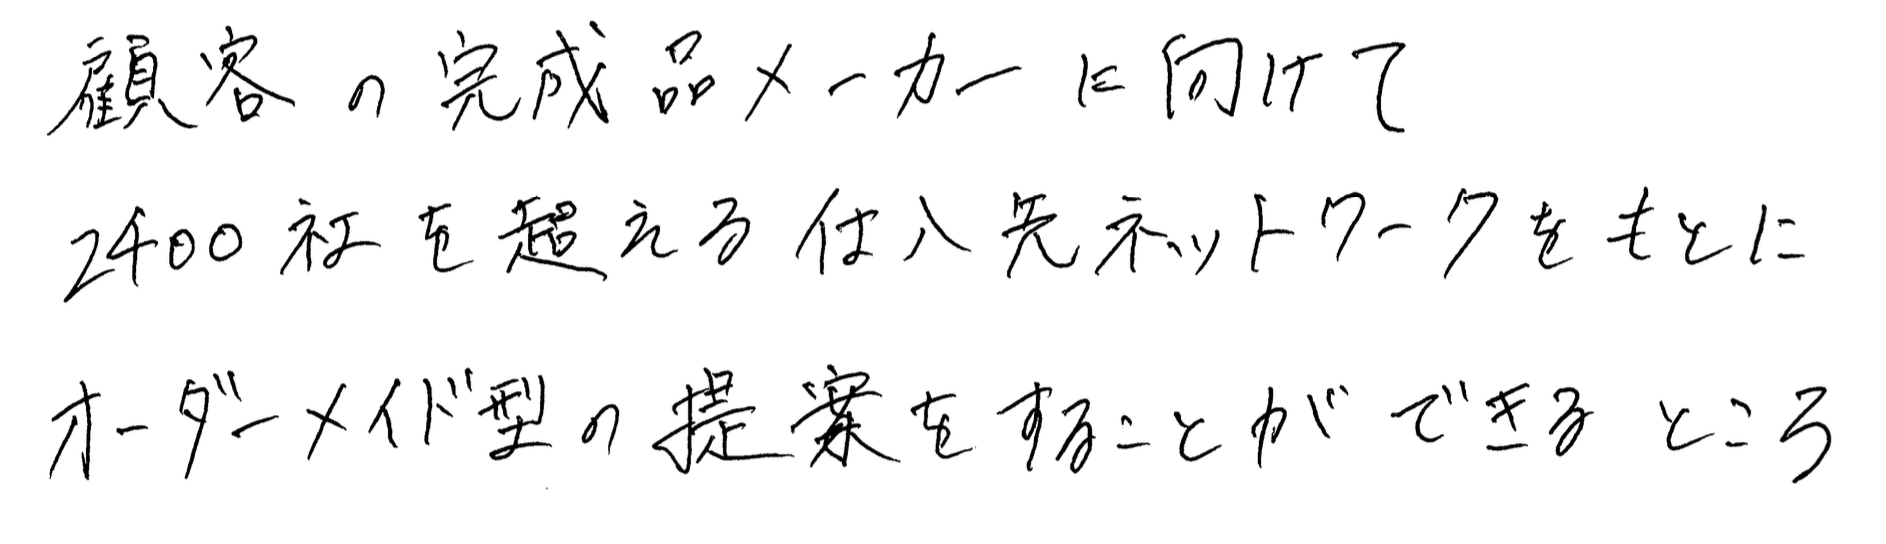 顧客の完成品メーカーに向けて
2400社を超える仕入先ネットワークをもとに
オーダーメイド型の提案をすることができるところ